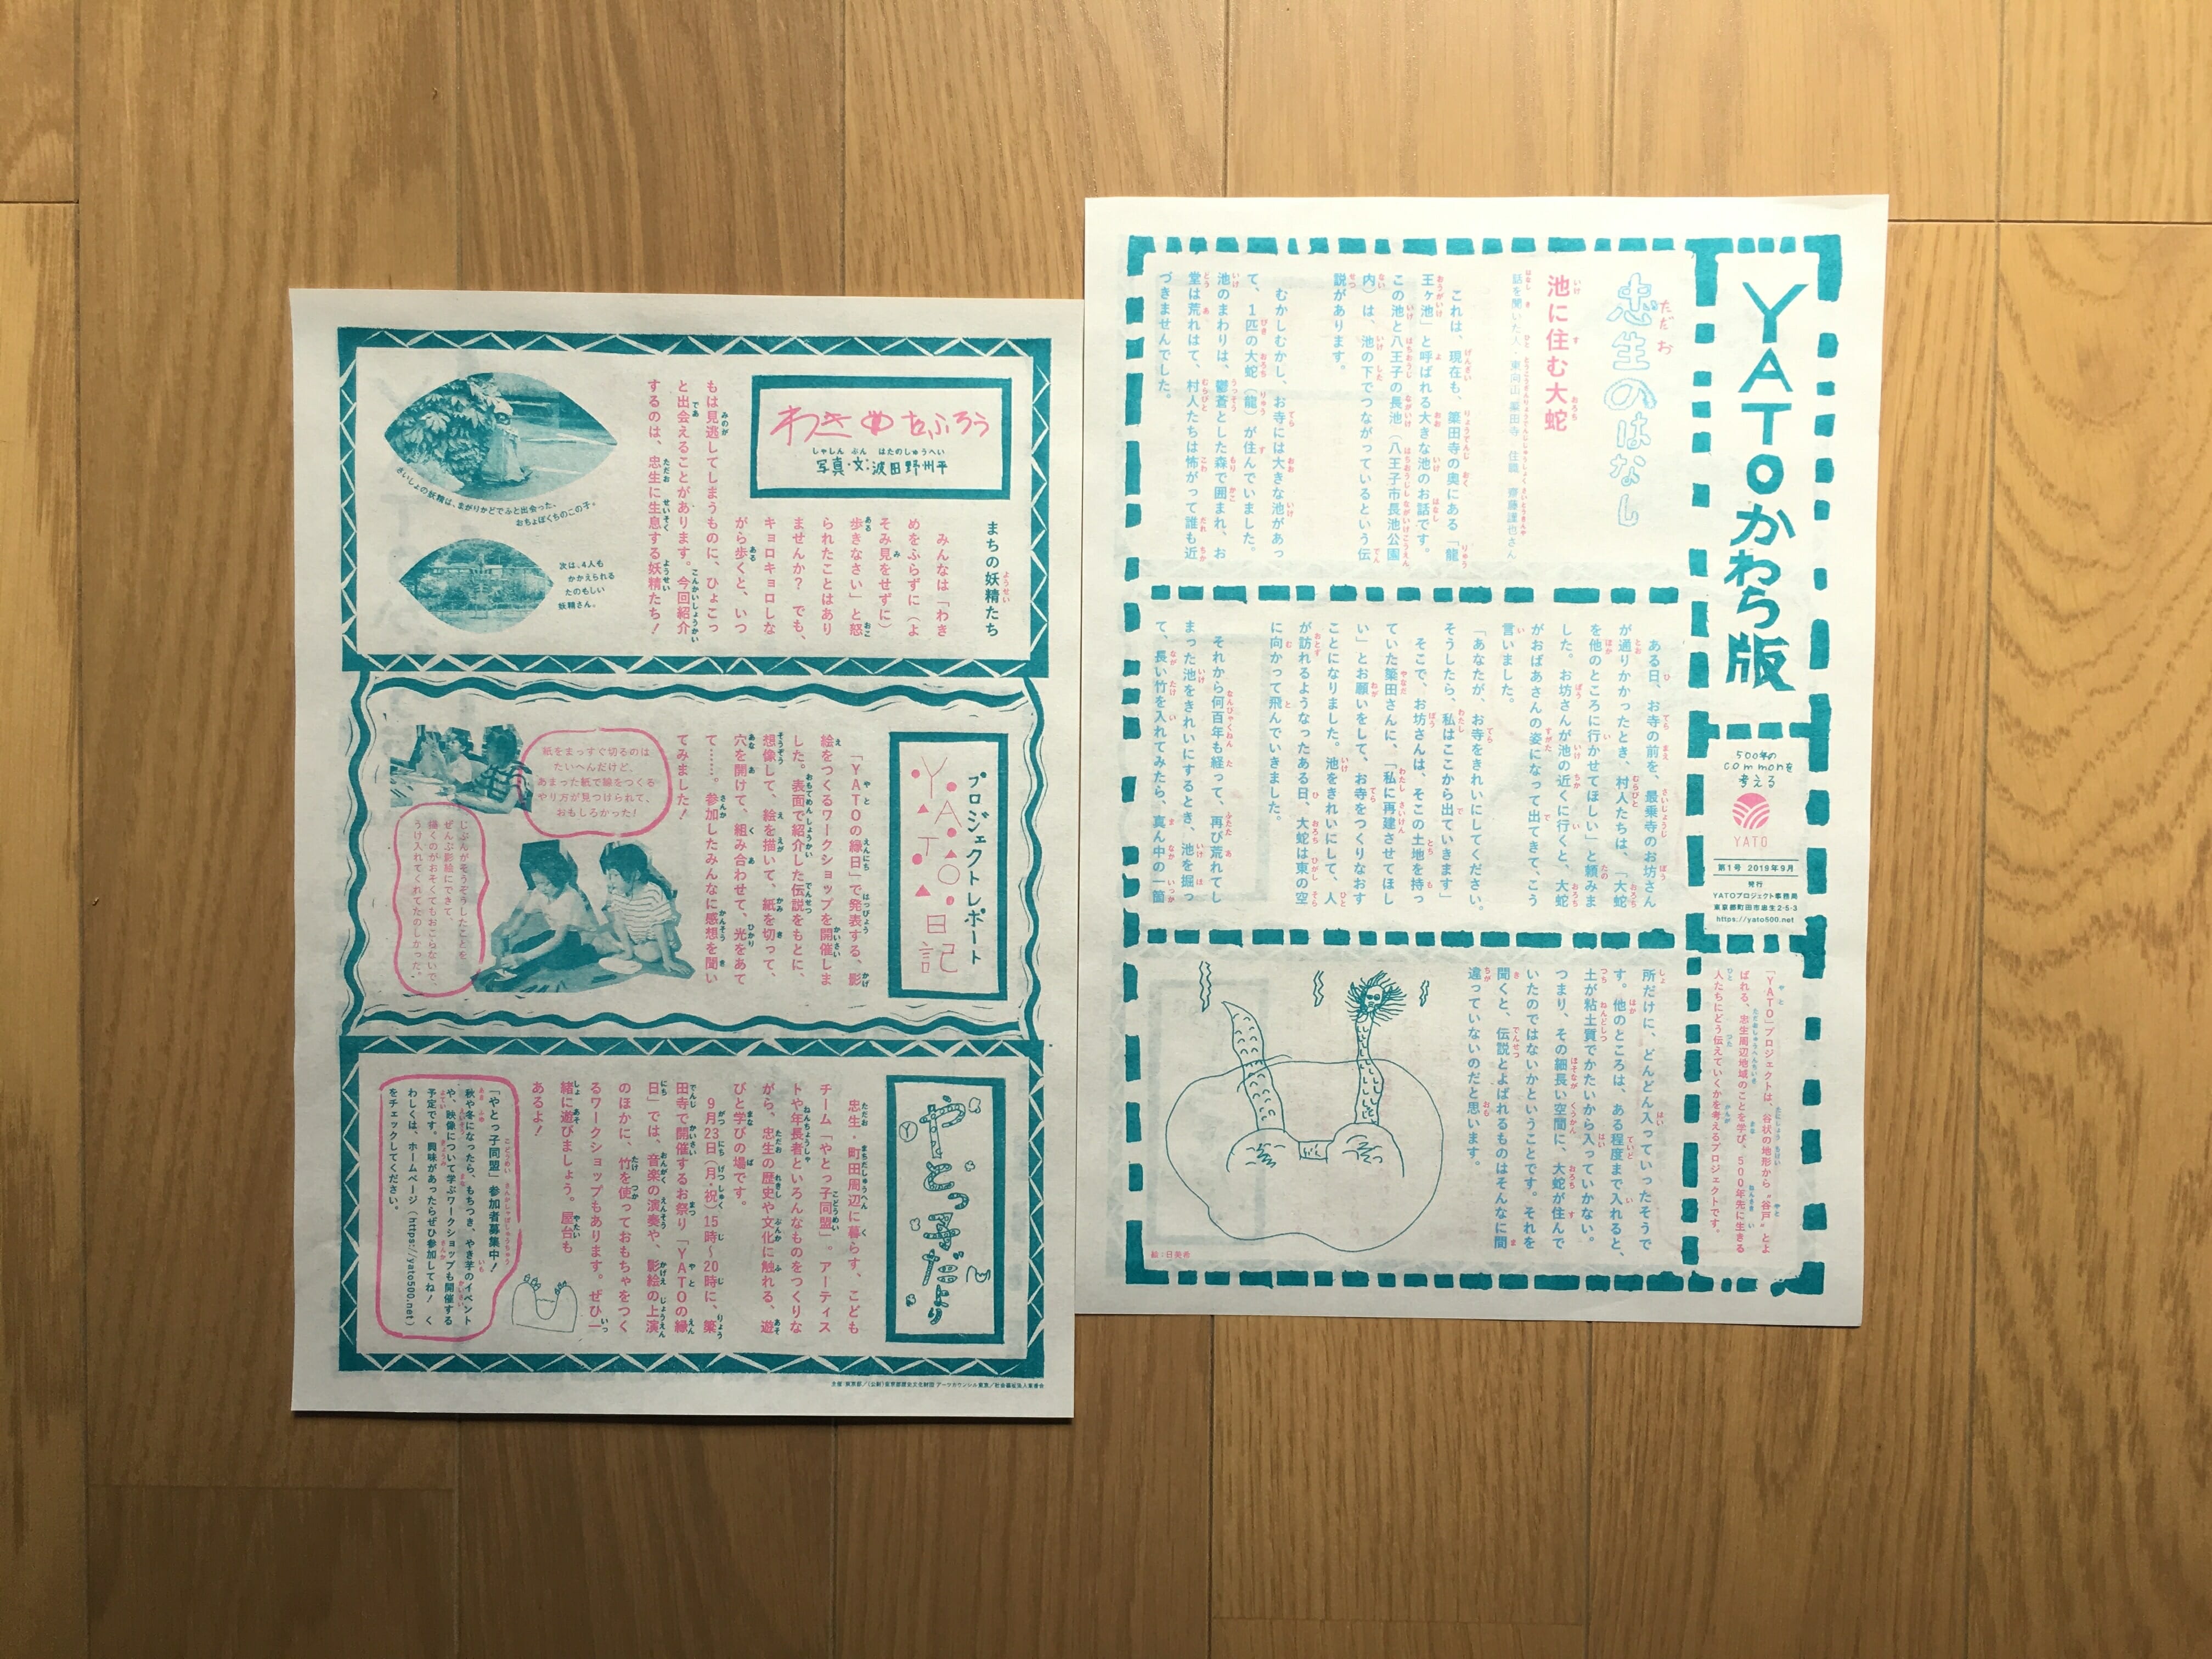 YATOかわら版
500年の
commonを
考える
YATO
第1号 2019年9月
発行
YATOプロジェクト事務局
東京都町田市忠生2-5-3
https://yato500.net
「YATO」プロジェクトは、谷状の地形から“谷戸”とよ
ばれる、忠生周辺地域のことを学び、500年先に生きる
人たちにどう伝えていくかを考えるプロジェクトです。
忠生のはなし
池に住む大蛇
話を聞いた人・東向山 簗田寺 住職 齋藤謹也さん
これは、現在も、簗田寺の奥にある「龍
王ヶ池」と呼ばれる大きな池のお話です。
この池と八王子の長池（八王子市長池公園
内）は、池の下でつながっているという伝
説があります。
むかしむかし、お寺には大きな池があっ
て、1匹の大蛇（龍）が住んでいました。
池のまわりは、鬱蒼とした森で囲まれ、お
堂は荒れはて、村人たちは怖がって誰も近
づきませんでした。
ある日、お寺の前を、最乗寺のお坊さん
が通りかかったとき、村人たちは、「大蛇
を他のところに行かせてほしい」と頼みま
した。お坊さんが池の近くに行くと、大蛇
がおばあさんの姿になって出てきて、こう
言いました。
「あなたが、お寺をきれいにしてください。
そうしたら、私はここから出ていきます」
そこで、お坊さんは、そこの土地を持っ
ていた簗田さんに、「私に再建させてほし
い」とお願いをして、お寺をつくりなおす
ことになりました。池をきれいにして、人
が訪れるようなったある日、大蛇は東の空
に向かって飛んでいきました。
それから何百年も経って、再び荒れてし
まった池をきれいにするとき、池を掘っ
て、長い竹を入れてみたら、真ん中の一箇
所だけに、どんどん入っていったそうで
す。他のところは、ある程度まで入れると、
土が粘土質でかたいから入っていかない。
つまり、その細長い空間に、大蛇が住んで
いたのではないかということです。それを
聞くと、伝説とよばれるものはそんなに間
違っていないのだと思います。
絵：日美香
わきめをふろう
写真・文：波田野州平
まちの妖精たち
みんなは「わき
めをふらずに（よ
そみ見をせずに）
歩きなさい」と怒
られたことはあり
ませんか？ でも、
キョロキョロしな
がら歩くと、いつ
もは見逃してしまうものに、ひょこっ
と出会えることがあります。今回紹介
するのは、忠生に生息する妖精たち！
さいしょの妖精は、まがりかどでふと出会った、
おちょぼくちのこの子。
次は、4人も
かかえられる
たのもしい
妖精さん。
プロジェクトレポート
YATO日記
「YATOの縁日」で発表する、影
絵をつくるワークショップを開催しま
した。表面で紹介した伝説をもとに、
想像して、絵を描いて、紙を切って、
穴を開けて、組み合わせて、光をあて
て……。参加したみんなに感想を聞い
てみました！
紙をまっすぐ切るのは
たいへんだけど、
あまった紙で鱗をつくる
やり方が見つけられて、
おもしろかった！
じぶんがそうぞうしたことを
ぜんぶ影絵にできて、
描くのがおそくてもおこらないで、
うけ入れてくれてたのしかった。
やとっ子だより
忠生・町田周辺に暮らす、こども
チーム「やとっ子同盟」。アーティス
トや年長者といろんなものをつくりな
がら、忠生の歴史や文化に触れる、遊
びと学びの場です。
9月23日（月・祝）15時〜20時に、簗
田寺で開催するお祭り「YATOの縁
日」では、音楽の演奏や、影絵の上演
のほかに、竹を使っておもちゃをつく
るワークショップもあります。ぜひ一
緒に遊びましょう。屋台も
あるよ！
「やとっ子同盟」参加者募集中！
秋や冬になったら、もちつき、やき芋のイベント
や、映像について学ぶワークショップも開催する
予定です。興味があったらぜひ参加してね！ く
わしくは、ホームページ（https://yato500.net）
をチェックしてください。
主催：東京都／（公財）東京都歴史文化財団 アーツカウンシル東京／社会福祉法人東香会